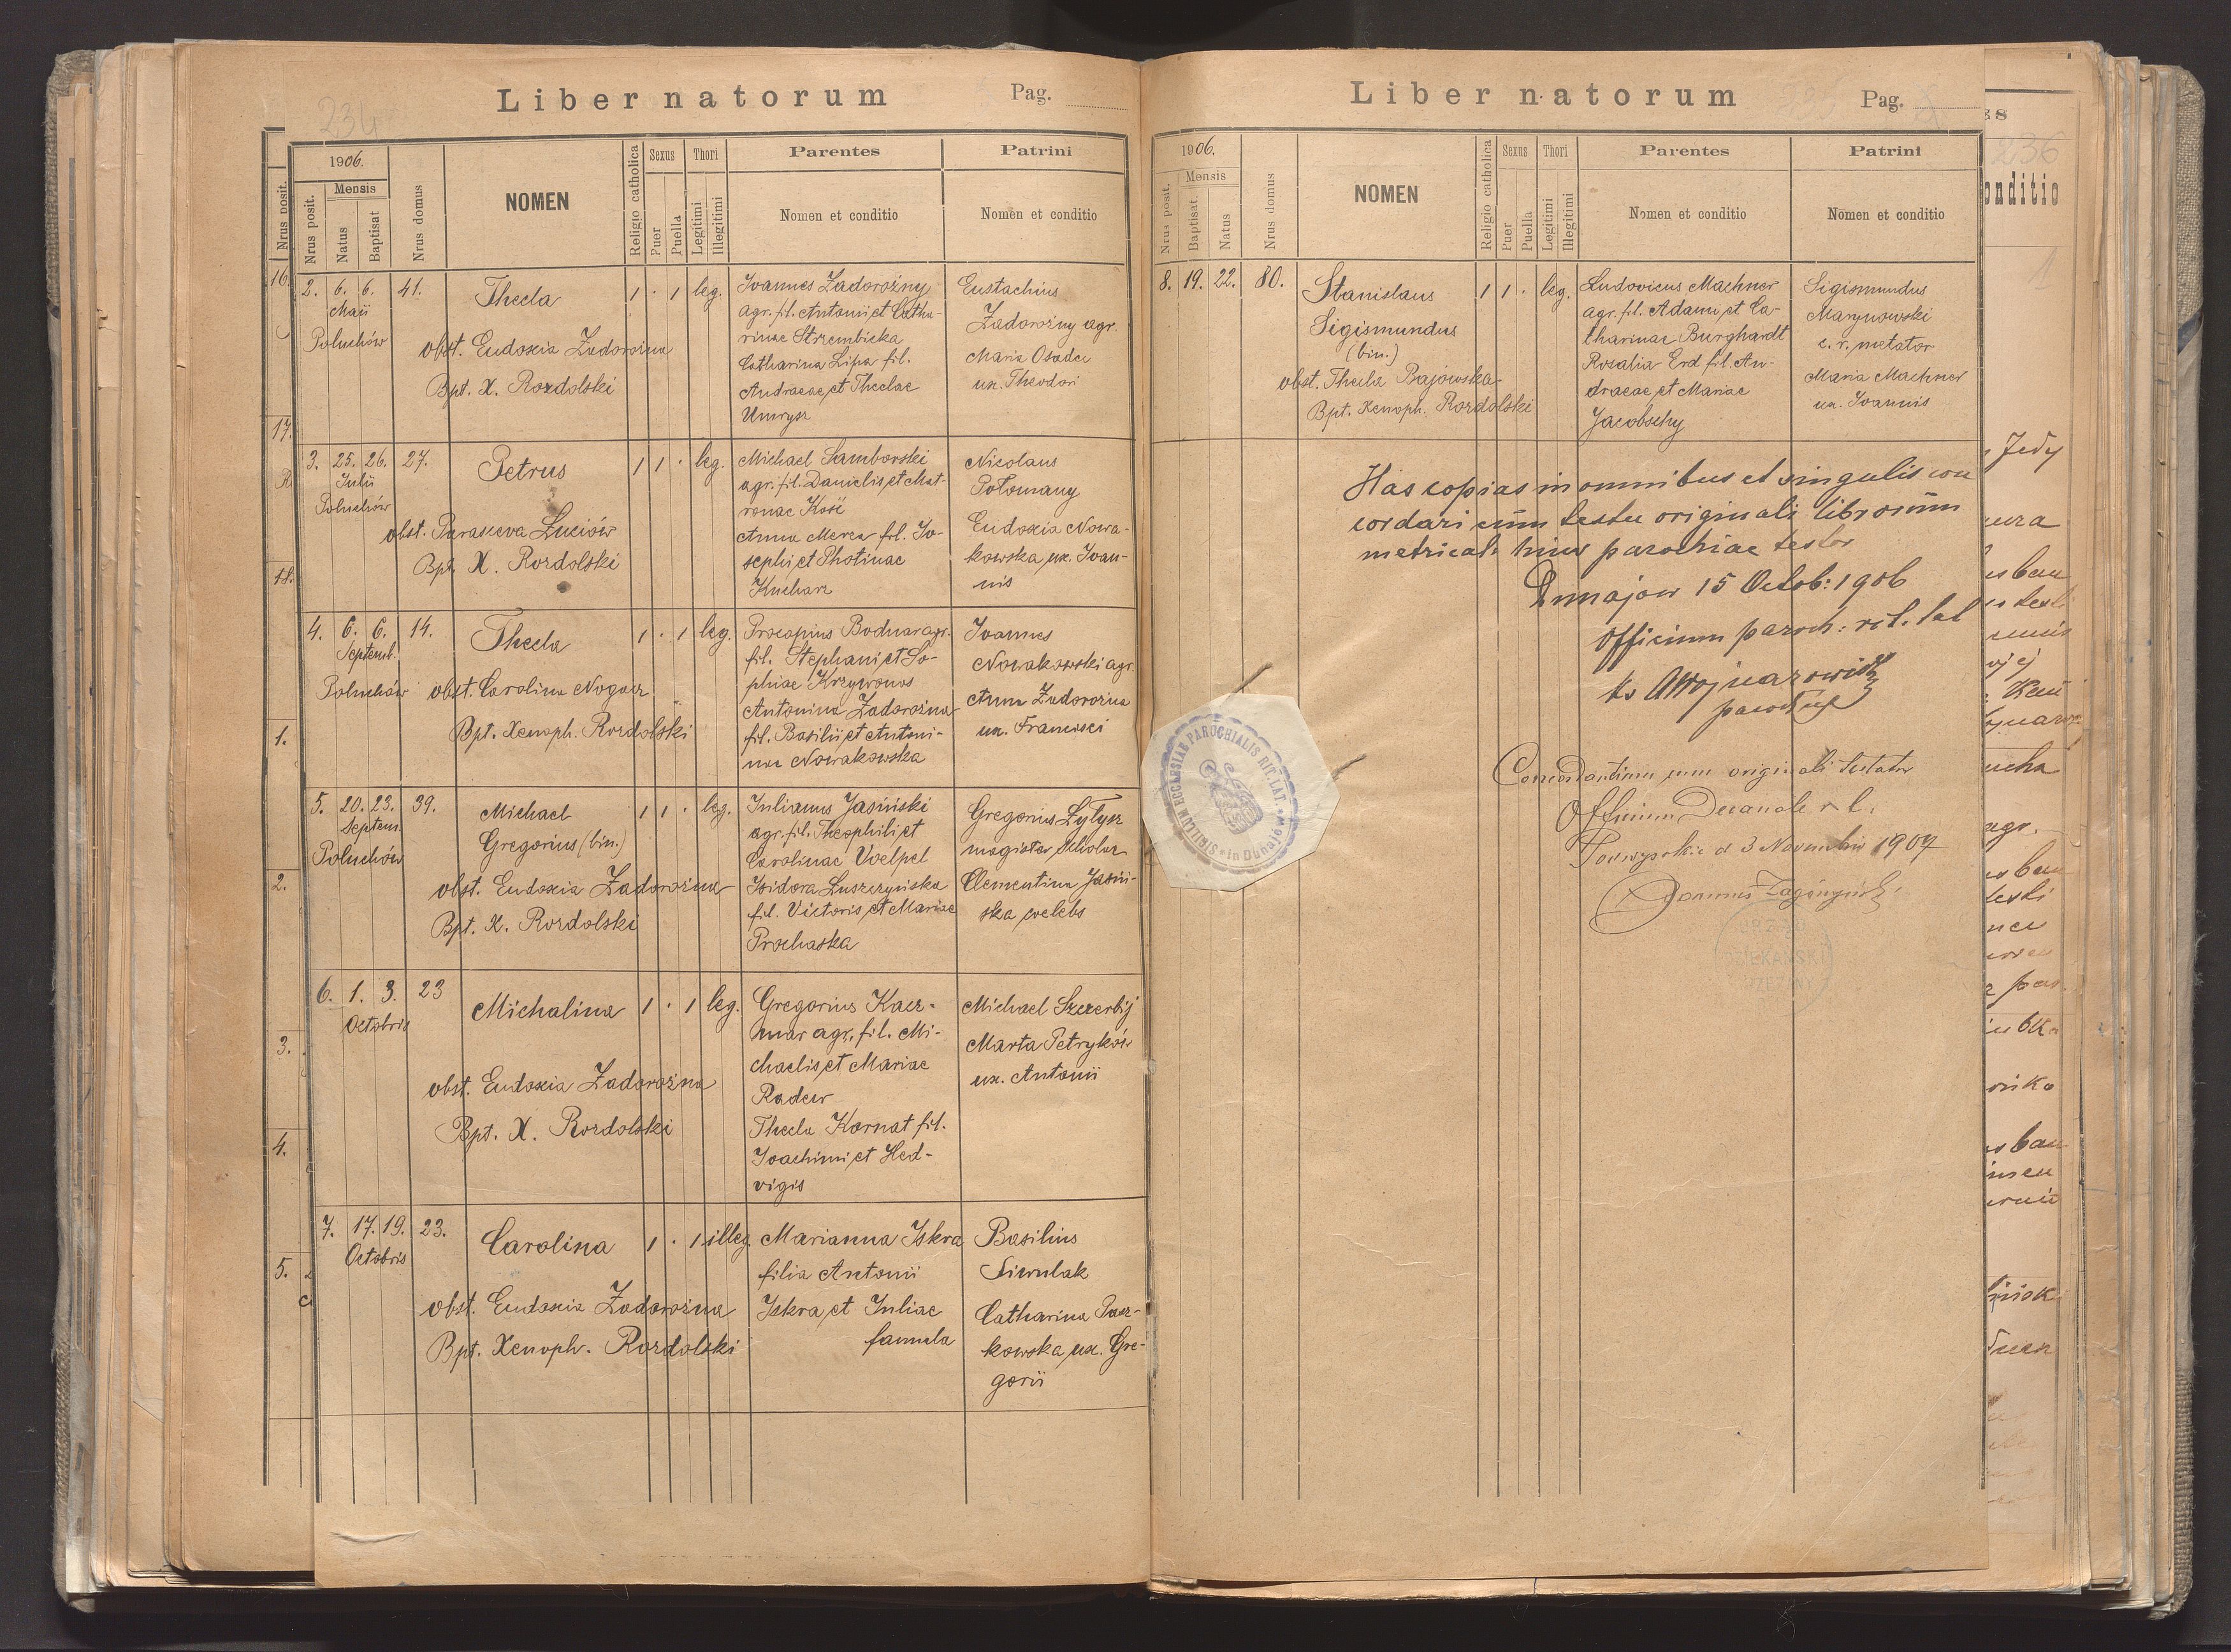 234
Liber natorum
Pag.
1906.
Nrus posit.
Nrus posit.
Mensis
Natus
Baptisat
Nrus domus
NOMEN
Religio catholica
Sexus
Puer
Puella
Thori
Legitimi
Illegitimi
Parentes
Nomen et conditio
Patrini
Nomen et conditio
16.
17.
18.
1.
2.
3.
4.
5.
2. 6. 6. 41.
Maii
Poluchów
Thecla
obst. Eudoxia Zadorożna
Bpt. X. Rozdolski
1 · 1 leg.
Ioannes Zadorożny
agr. fil. Antonii et Catha-
rinae Strzembicka
Catharina Lipa fil.
Andraeae et Theclae
Umrysz
Eustachius
Zadorożny agr.
Maria Osadca
ux. Theodori
3. 25. 26. 27.
Iulii
Poluchów
Petrus
obst. Parasceva Luciów
Bpt. X. Rozdolski
1 1 · leg.
Michael Samborski
agr. fil. Danielis et Mat-
ronae Kość
Anna Merca fil. Io-
sephi et Photinae
Kucharz
Nicolaus
Potomany
Eudoxia Nowa-
kowska ux. Ioan-
nis
4. 6. 6. 14.
Septemb.
Poluchów
Thecla
obst. Carolina Nogacz
Bpt. Xenoph. Rozdolski
1 · 1 leg.
Procopius Bodnar agr.
fil. Stephani et So-
phiae Krzywonos
Antonina Zadorożna
fil. Basilii et Antoni-
nae Nowakowska
Ioannes
Nowakowski agr.
Anna Zadorożna
ux. Francisci
5. 20. 23. 39.
Septem.
Poluchów
Michael
Gregorius (bin.)
obst. Eudoxia Zadorożna
Bpt. X. Rozdolski
1 1 · leg.
Iulianus Jasiński
agr. fil. Theophili et
Carolinae Voelpel
Isidora Łuszczyńska
fil. Victoris et Mariae
Prochaska
Gregorius Łytysz
magister scholar
Clementina Jasiń-
ska coelebs
6. 1. 3. 23
Octobris
Michalina
obst. Eudoxia Zadorożna
Bpt. X. Rozdolski
1 · 1 leg.
Gregorius Kacz-
mar agr. fil. Mi-
chaelis et Mariae
Radew
Thecla Kornat fil.
Ioachimi et Hed-
vigis
Michael Szczerbij
Marta Petryków
ux. Antonii
7. 17. 19. 23.
Octobris
Carolina
obst. Eudoxia Zadorożna
Bpt. Xenoph. Rozdolski
1 · 1 illeg.
Marianna Iskra
filia Antonii
Iskra et Iuliae
famula
Basilius
Siwulak
Catharina Pasz-
kowska ux. Gre-
gorii
Liber natorum
Pag.
1906.
Nrus posit.
Mensis
Baptisat.
Natus
Nrus domus
NOMEN
Religio catholica
Sexus
Puer
Puella
Thori
Legitimi
Illegitimi
Parentes
Nomen et conditio
Patrini
Nomen et conditio
8. 19. 22. 80.
Stanislaus
Sigismundus
(bin.)
obst. Thecla Bajowska
Bpt. Xenoph. Rozdolski
1 1 · leg.
Ludovicus Machner
agr. fil. Adami et Ca-
tharinae Burghardt
Rosalia Erd fil. An-
draeae et Mariae
Jacobschy
Sigismundus
Marynowski
c. r. metator
Maria Machner
ux. Ioannis
Has copias in omnibus et singulis con
cordari cum textu originali librorum
metrical: huius parochiae testor
Dunajow 15 Octob: 1906
Officium paroch: rit. lat
paroch
SIGILLUM ECCLESIAE PAROCHIALIS RIT. LAT. in Dunajów
Concordantiam cum originali testatur
Officium Decanale r. l.
d 3 Novembris 1907
DZIEKAŃSKI
236
onditio